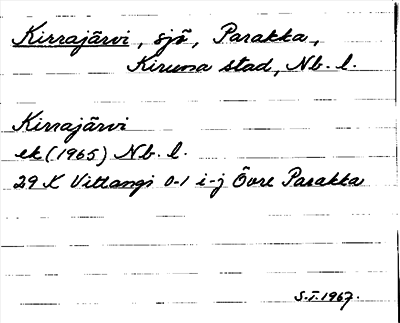 Kirrajärvi, sjö, Parakka,
Kiruna stad, Nb. l.
Kirrajärvi
ek (1965) Nb. l.
29 K Vittangi 0-1 i-j Övre Parakka
S.I. 1967.